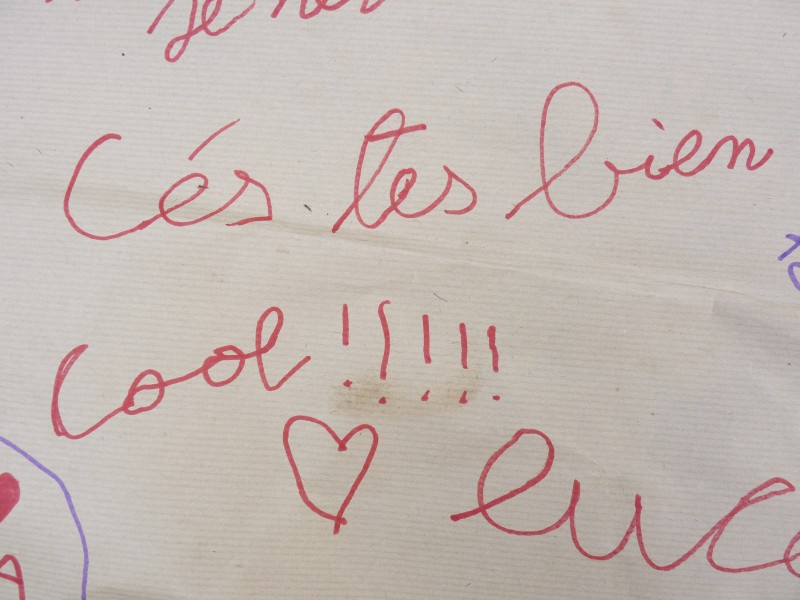 Cés tes bien
cool !!!!!